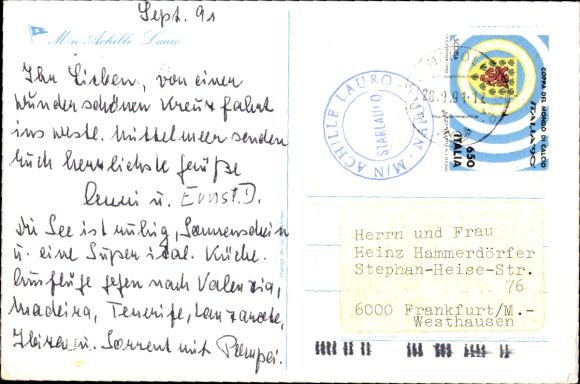 Sept. 91
M/n Achille Lauro
Ihr Lieben, von einer
wunderschönen Kreuzfahrt
ins westl. Mittelmeer senden
Euch herzlichste Grüße
Anni u. Ernst D.
Die See ist ruhig, Sonnenschein
u. eine Super ital. Küche.
Ausflüge gehen nach Valenzia,
Madeira, Tenerife, Lanzarote,
Ibiza u. Sorrent mit Pompei.
M/N ACHILLE LAURO
STARLAURO
COPPA DEL MONDO DI CALCIO
ITALIA '90
650
ITALIA
Herrn und Frau
Heinz Hammerdörfer
Stephan-Heise-Str.
76
6000 Frankfurt/M.-
Westhausen